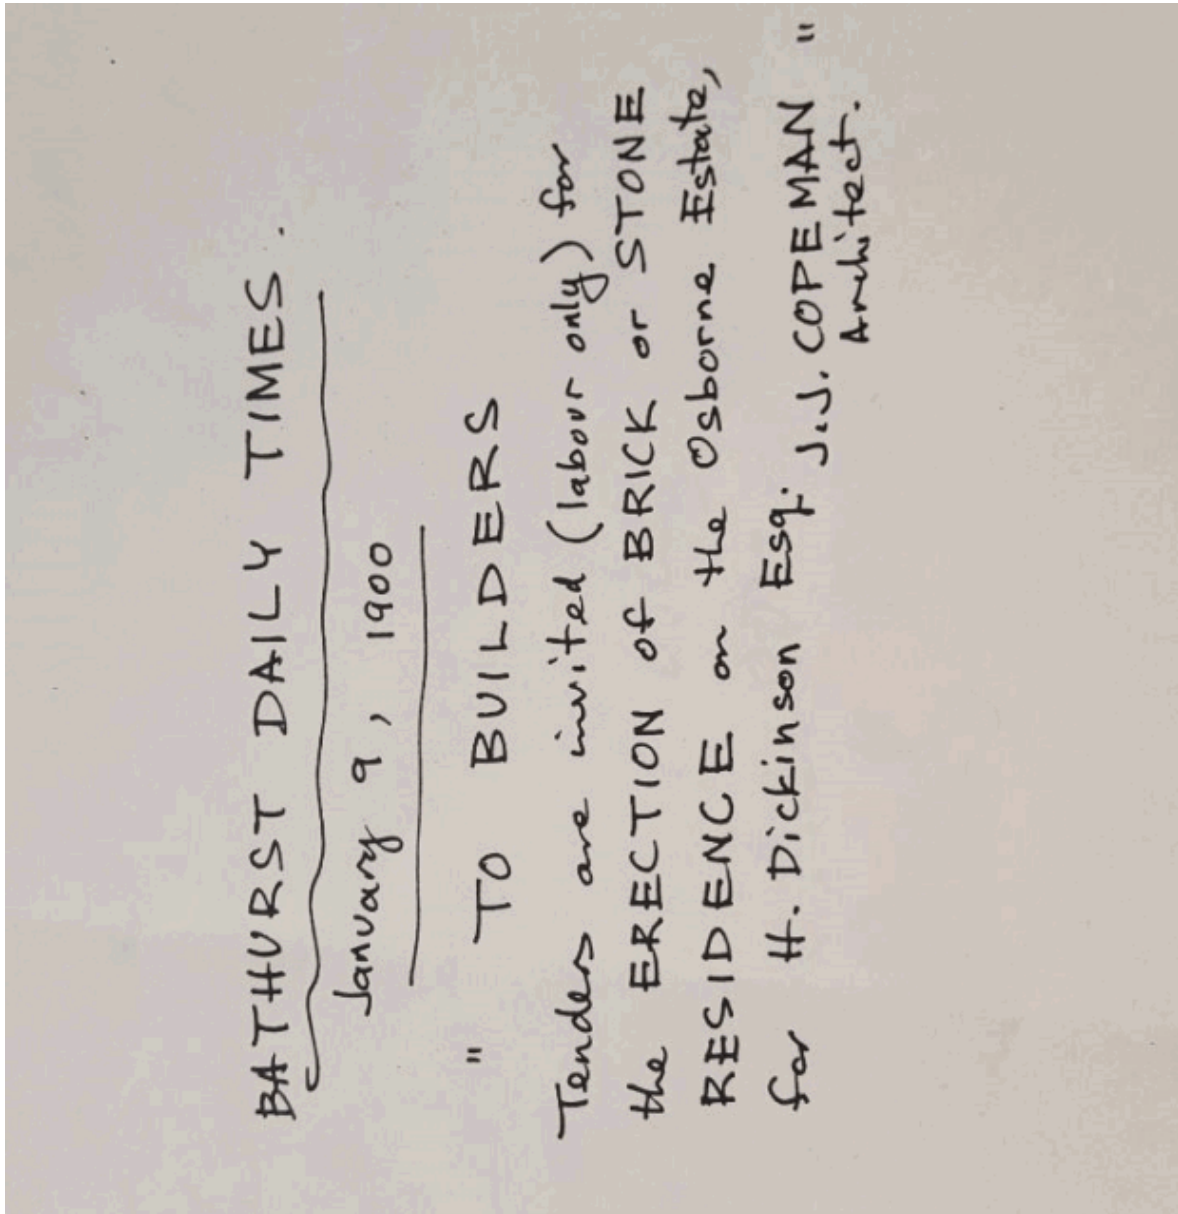 BATHURST DAILY TIMES.
January 9, 1900
" TO BUILDERS
Tenders are invited (labour only) for
the ERECTION of BRICK or STONE
RESIDENCE on the Osborne Estate,
for H. Dickinson Esq. J.J. COPEMAN "
Architect.